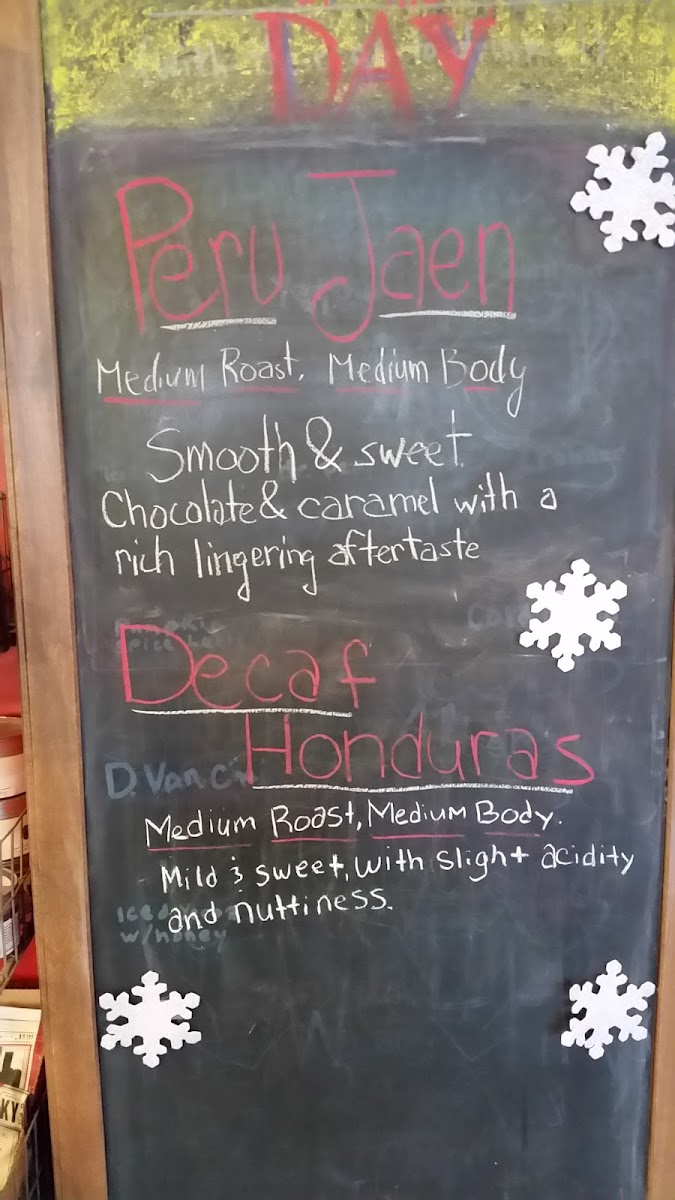 DAY
Peru Jaen
Medium Roast, Medium Body
Smooth & sweet
Chocolate & caramel with a
rich lingering aftertaste
Decaf
Honduras
D. Van
Medium Roast, Medium Body.
Mild & sweet, with slight acidity
and nuttiness.
w/honey
KY